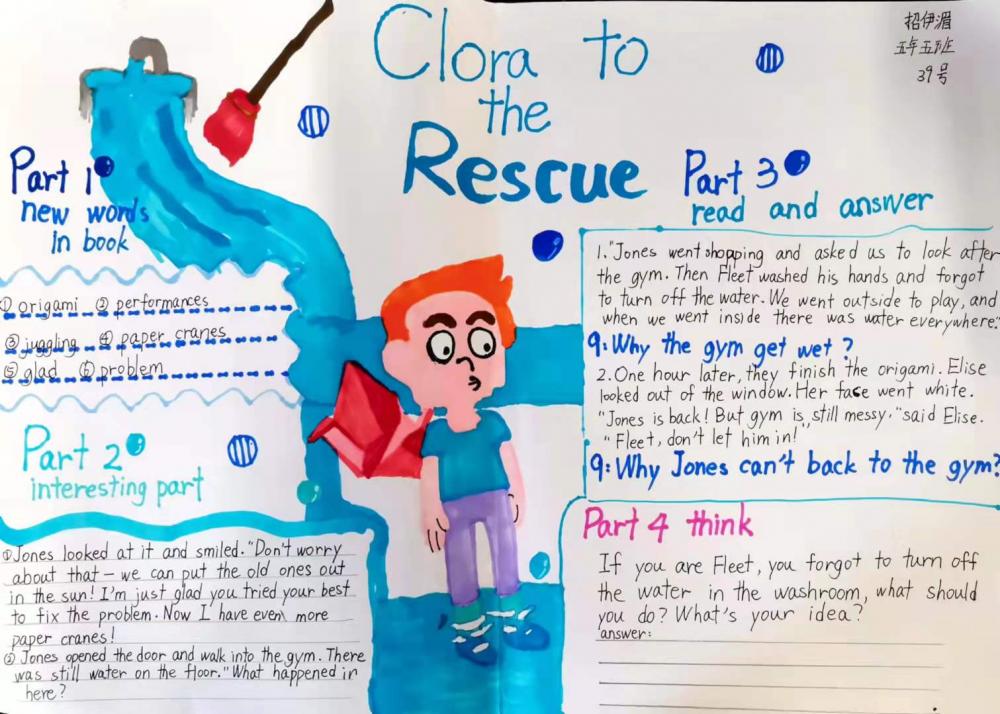 Clora to
the
Rescue
招伊湄
五年五班
39号
Part 1
new words
in book
① origami ② performances
③ juggling ④ paper cranes
⑤ glad ⑥ problem
Part 2
interesting part
① Jones looked at it and smiled. "Don't worry
about that — we can put the old ones out
in the sun! I'm just glad you tried your best
to fix the problem. Now I have even more
paper cranes!
② Jones opened the door and walk into the gym. There
was still water on the floor. "What happened in
here?
Part 3
read and answer
1. "Jones went shopping and asked us to look after
the gym. Then Fleet washed his hands and forgot
to turn off the water. We went outside to play, and
when we went inside there was water everywhere."
q: Why the gym get wet ?
2. One hour later, they finish the origami. Elise
looked out of the window. Her face went white.
"Jones is back! But gym is still messy." said Elise.
"Fleet, don't let him in!
q: Why Jones can't back to the gym?
Part 4 think
If you are Fleet, you forgot to turn off
the water in the washroom, what should
you do? What's your idea?
answer: